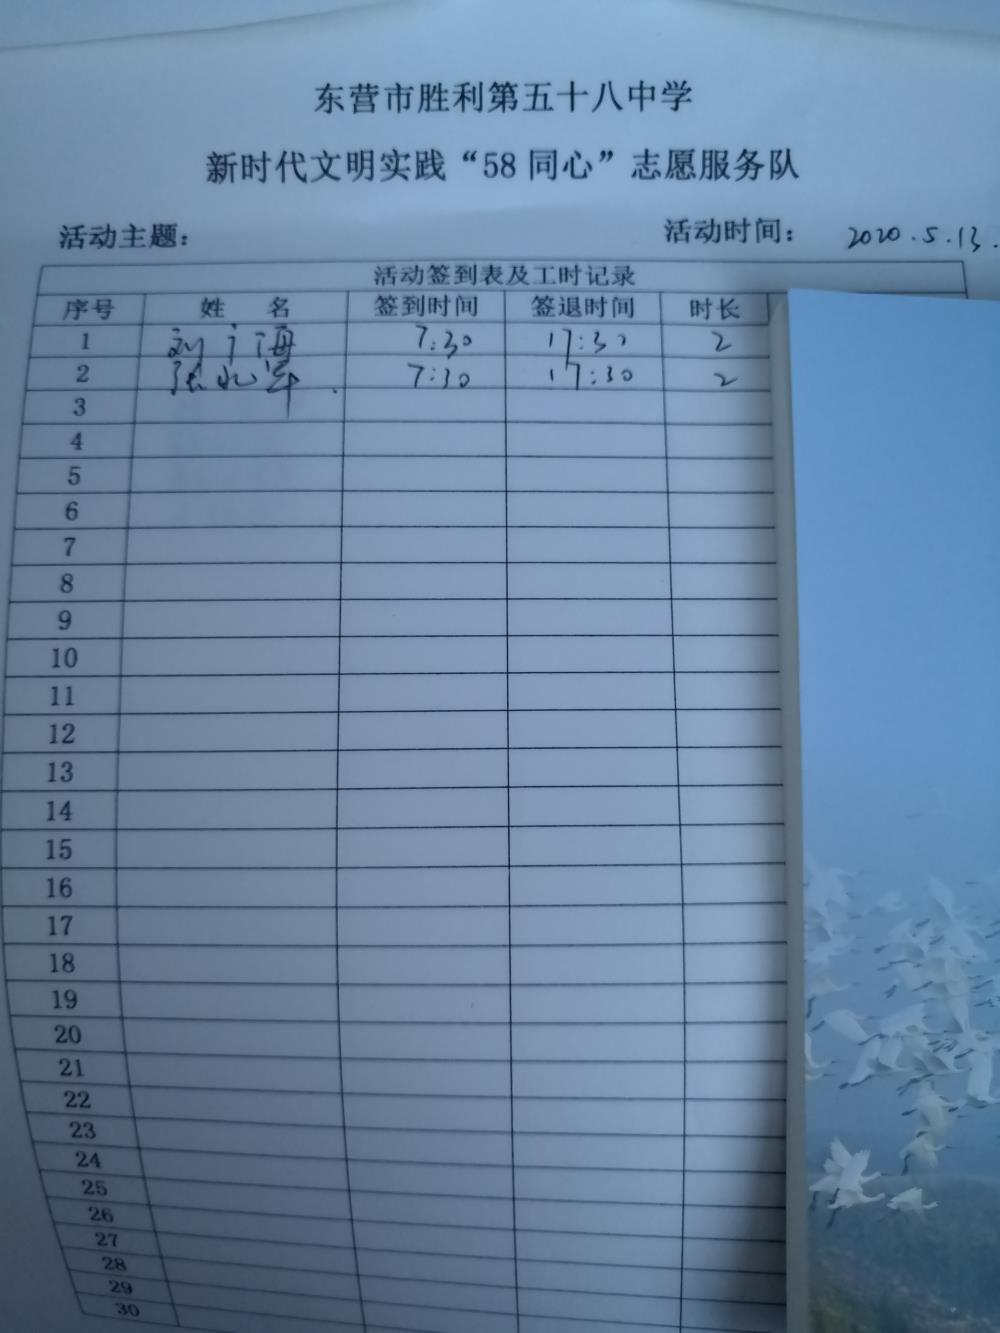 东营市胜利第五十八中学
新时代文明实践“58同心”志愿服务队
活动主题： 活动时间： 2020.5.13.
活动签到表及工时记录
序号 姓 名 签到时间 签退时间 时长
1 刘广海 7:30 17:30 2
2 张 军 7:30 17:30 2
3
4
5
6
7
8
9
10
11
12
13
14
15
16
17
18
19
20
21
22
23
24
25
26
27
28
29
30